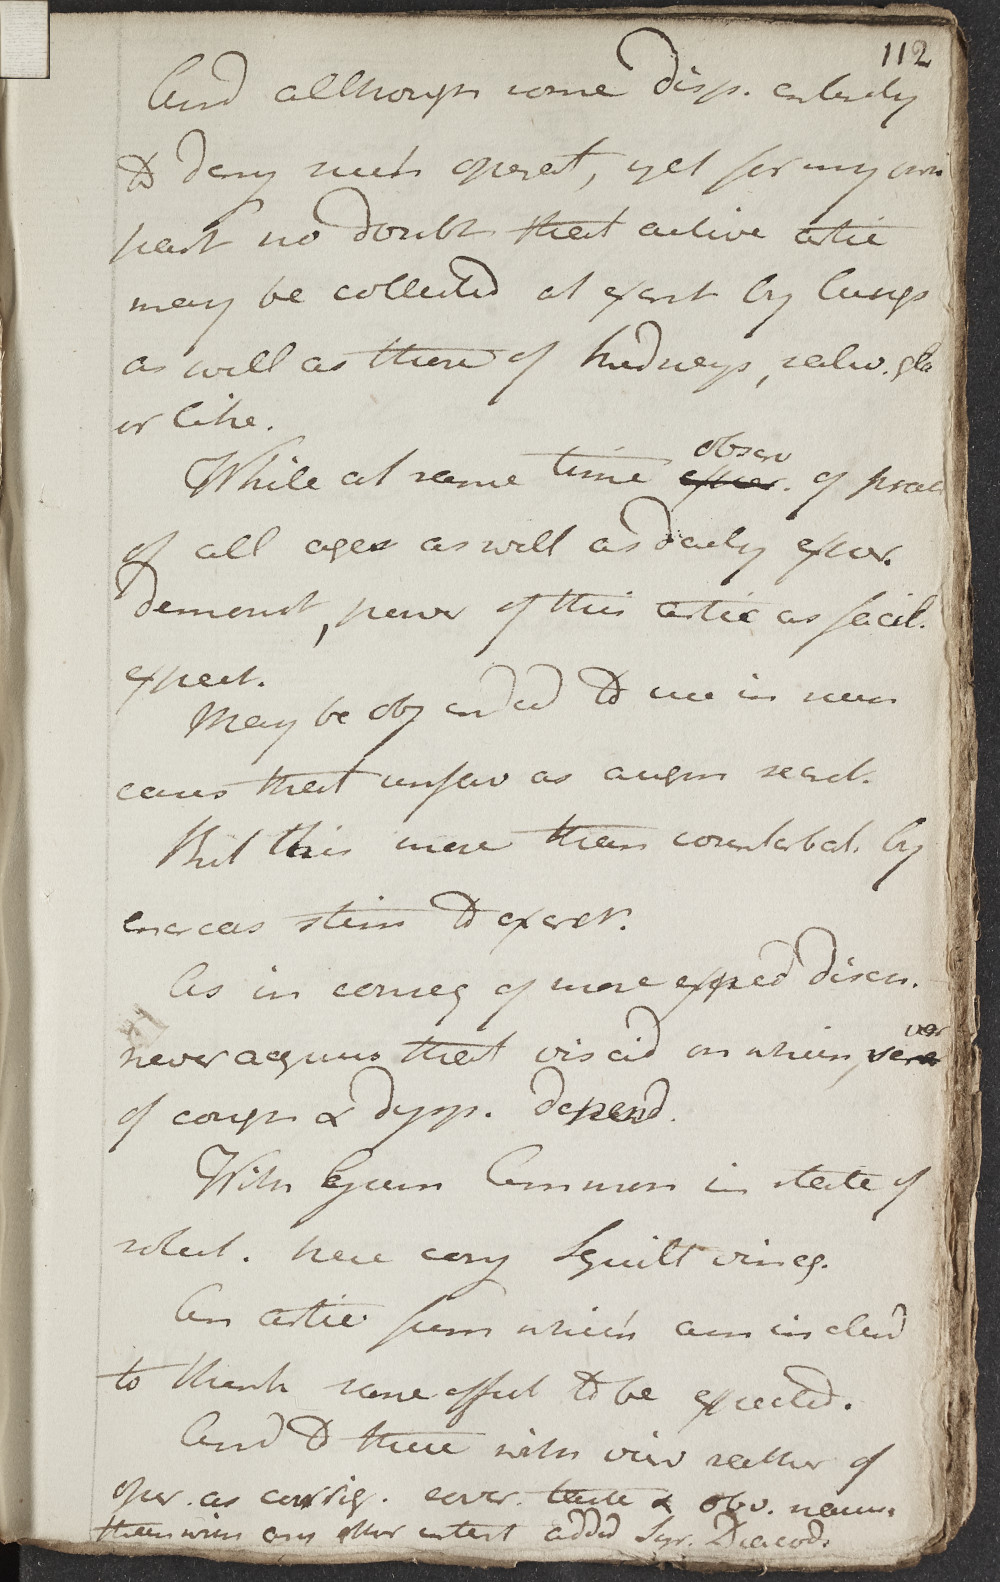 112
And although some disp. entirely
to deny such operat, yet for my own
part no doubt that active artic
may be collected at exert by lungs
as well as those of kidneys, saliv. gla
or like.
While at same time obser of pract
of all ages as well as daily exper.
demonst, power of this artic as facil.
expect.
May be obj indeed to use in such
cases that unfav as augm secret.
But this more than counterbal. by
increas stim to excret.
As in conseq of more exped disch.
never acquires that viscid on which ver
of cough & dysp. depend.
With Gum Ammon in state of
solut. here conj Squill vineg.
An artic from which am inclin'd
to think some effect to be expected.
And to these with view rather of
oper. as corrig. cover. taste & obv. nausea
than with any other intent added Syr. Diacod.